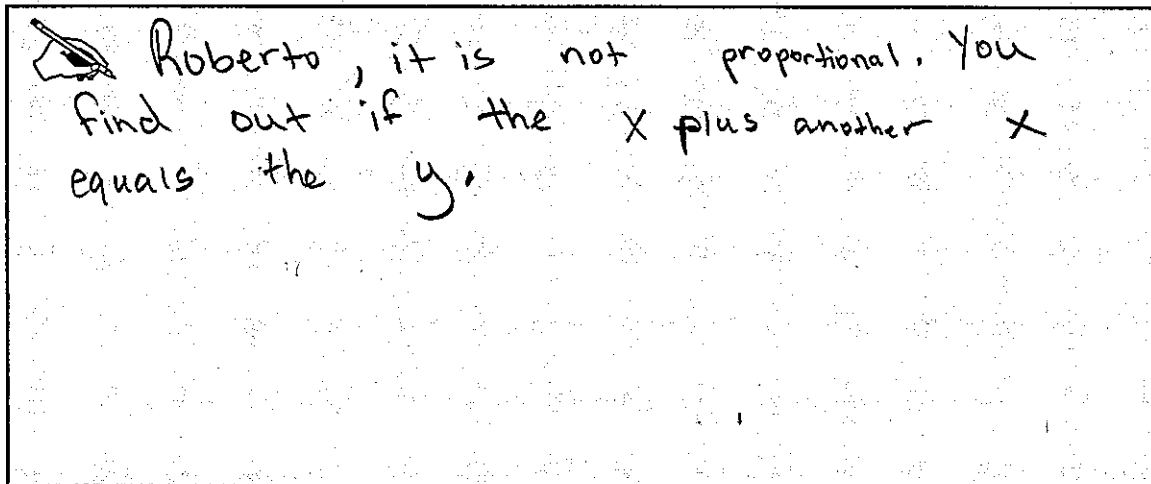 Roberto, it is not proportional. You
find out if the x plus another x
equals the y.